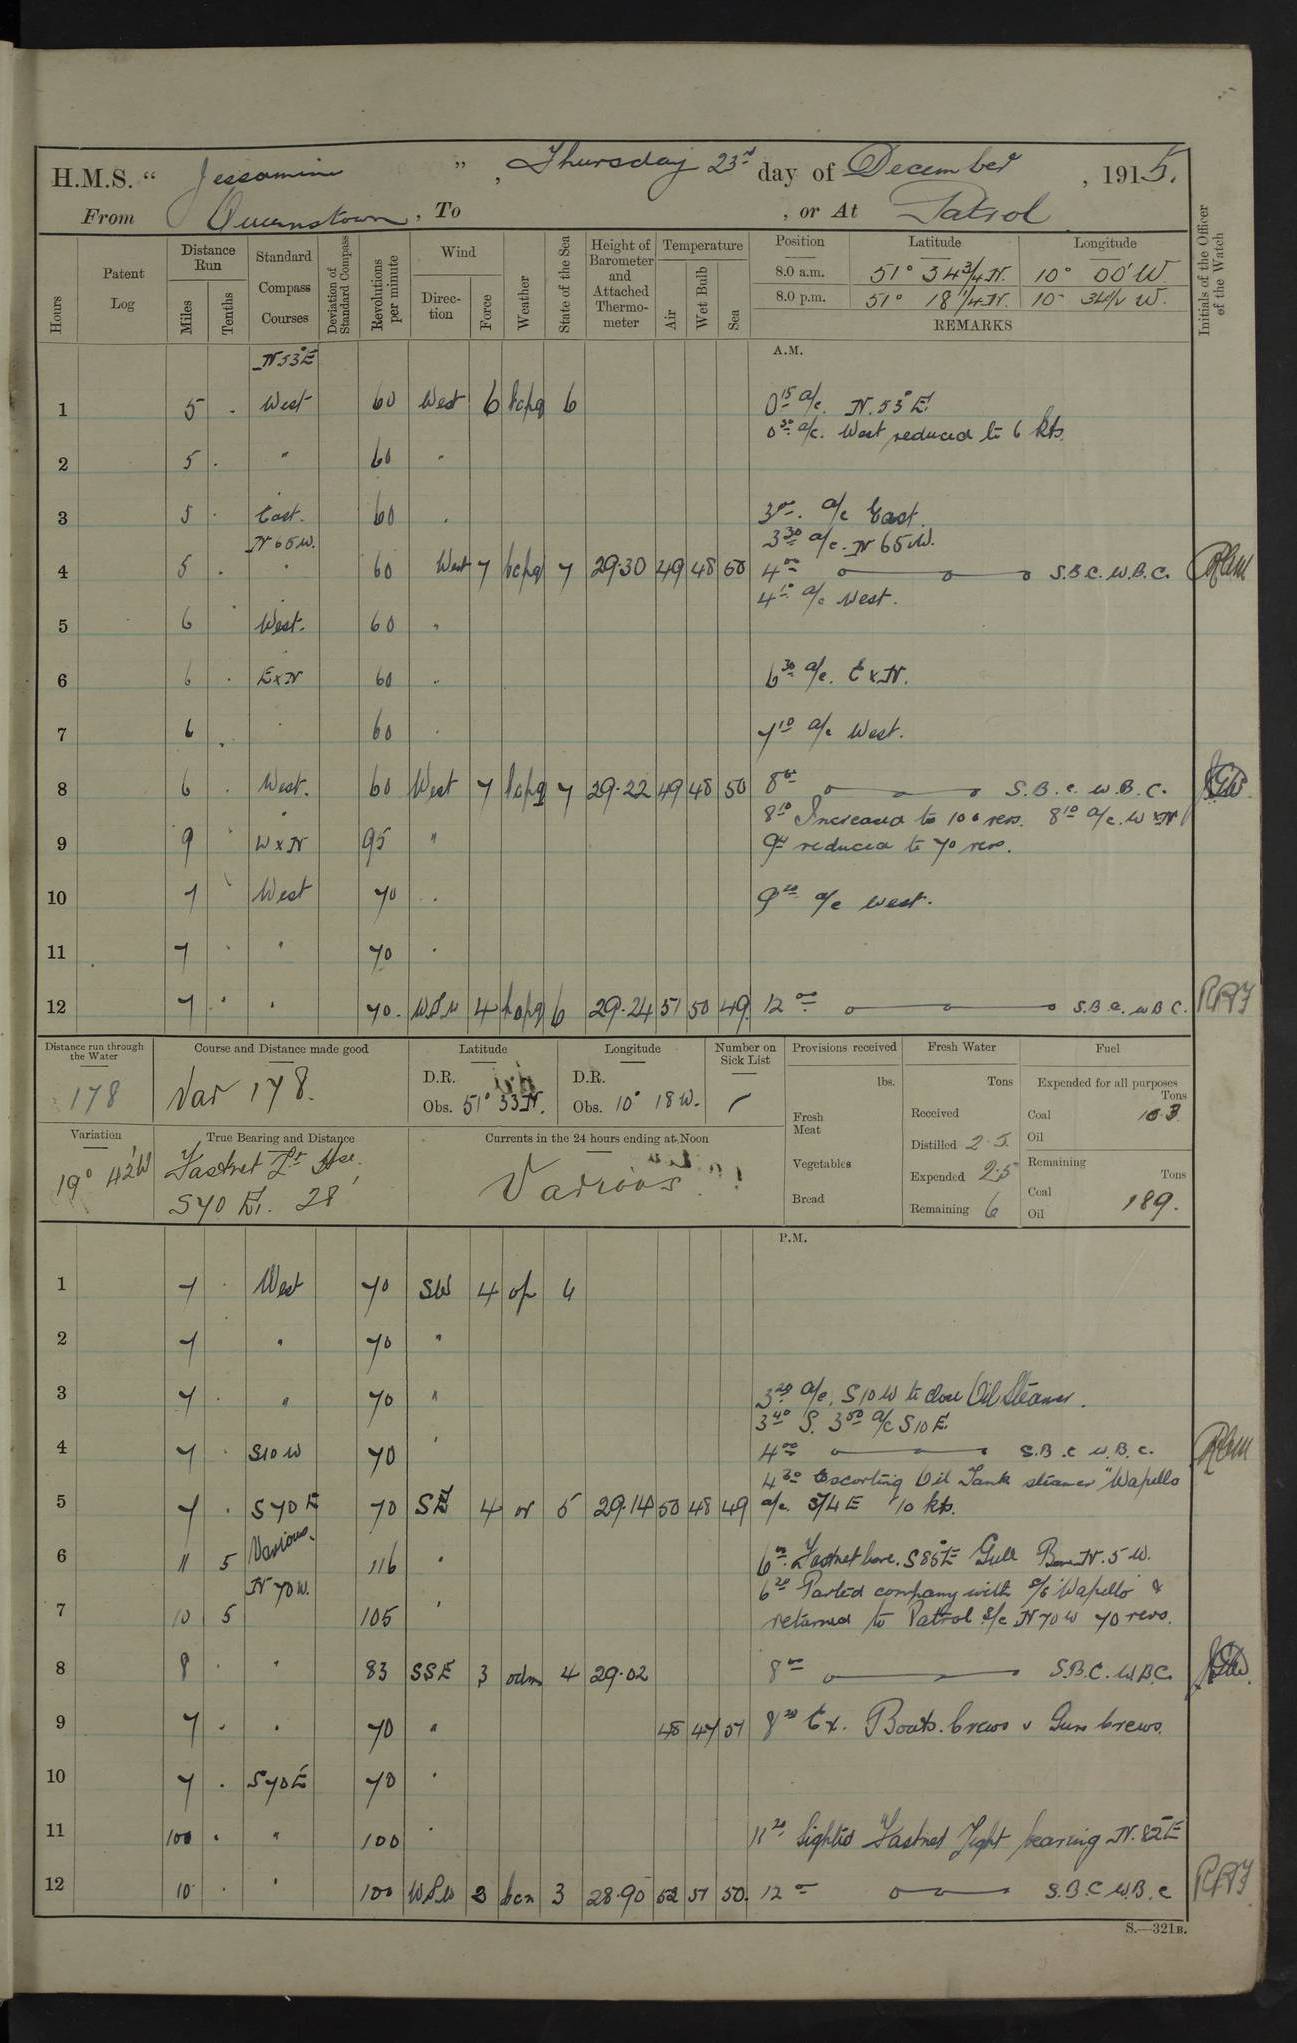 H.M.S. “ Jessamine ” , Thursday 23rd day of December , 1915.
From Queenstown , To , or At Patrol
Hours
Patent Log
Distance Run
Miles
Tenths
Standard Compass Courses
Deviation of Standard Compass
Revolutions per minute
Wind
Direction
Force
Weather
State of the Sea
Height of Barometer and Attached Thermometer
Temperature
Air
Wet Bulb
Sea
Position Latitude Longitude
8.0 a.m. 51° 34 3/4 N. 10° 00' W
8.0 p.m. 51° 18 1/4 N. 10° 34 1/2 W.
REMARKS
Initials of the Officer of the Watch
A.M.
N 53° E
1 5 . West 60 West 6 bcpq 6 0 15 a/c. N. 53° E.
0 30 a/c. West reduced to 6 kts.
2 5 . " 60 "
3 5 . East. 60 " 3 00. a/c East.
N 65 W. 3 30 a/c. N 65 W.
4 5 . " 60 West 7 bcpq 7 29.30 49 48 50 4 00 S.B.C. W.B.C.
4 10 a/c West.
5 6 West. 60 "
6 6 . ExN 60 " 6 30 a/c. ExN.
7 6 . 60 " 7 10 a/c West.
8 6 . West. 60 West 7 bcpq 7 29.22 49 48 50 8 00 S.B.C. W.B.C.
8 10 Increased to 100 revs. 8 10 a/c. WxN
9 9 WxN 95 " 9 00 reduced to 70 revs.
10 7 West 70 " 9 20 a/c West.
11 7 . " 70 "
12 7 . " 70. WSW 4 bcpq 6 29.24 51 50 49 12 00 S.B.C. W.B.C. RRF
Distance run through the Water
178
Course and Distance made good
Var 178.
Latitude
D.R.
Obs. 51° 33 N.
Longitude
D.R.
Obs. 10° 18 W.
Number on Sick List
/
Variation
19° 42' W
True Bearing and Distance
Fastnet Lt Hse.
S 70 E. 28'
Currents in the 24 hours ending at Noon
Various
Provisions received
lbs.
Fresh Meat
Vegetables
Bread
Fresh Water
Tons
Received
Distilled 2.5
Expended 2.5
Remaining 6
Fuel
Expended for all purposes
Tons
Coal 10.3
Oil
Remaining
Tons
Coal 189.
Oil
P.M.
1 7 . West 70 SW 4 op 6
2 7 " 70 "
3 7 . " 70 " 3 20 a/c. S 10 W to close Oil Steamer.
3 40 S. 3 50 a/c S 10 E.
4 7 . S 10 W 70 " 4 00 S.B.C. W.B.C.
4 30 Escorting Oil Tank steamer "Wapello
5 7 . S 70 E 70 SE 4 or 5 29.14 50 48 49 a/c. S 74 E 10 kts.
6 11 5 Various. 116 " 6 00. Fastnet bore. S 85° E Gull Bore N. 5 W.
N 70 W. 6 20 Parted company with S/S Wapello &
7 10 5 105 " returned to Patrol a/c N 70 W 70 revs.
8 8 . " 83 SSE 3 odm 4 29.02 8 00 S.B.C. W.B.C.
9 7 . " 70 " 48 47 51 8 20 Ex. Boats. Crews & Gun Crews.
10 7 . S 70 E 70 "
11 100 . " 100 " 11 20 Sighted Fastnet Light bearing N. 82° E
12 10 . " 100 WSW 3 bcn 3 28.90 52 51 50. 12 00 S.B.C W.B.C RRF
S.—321B.